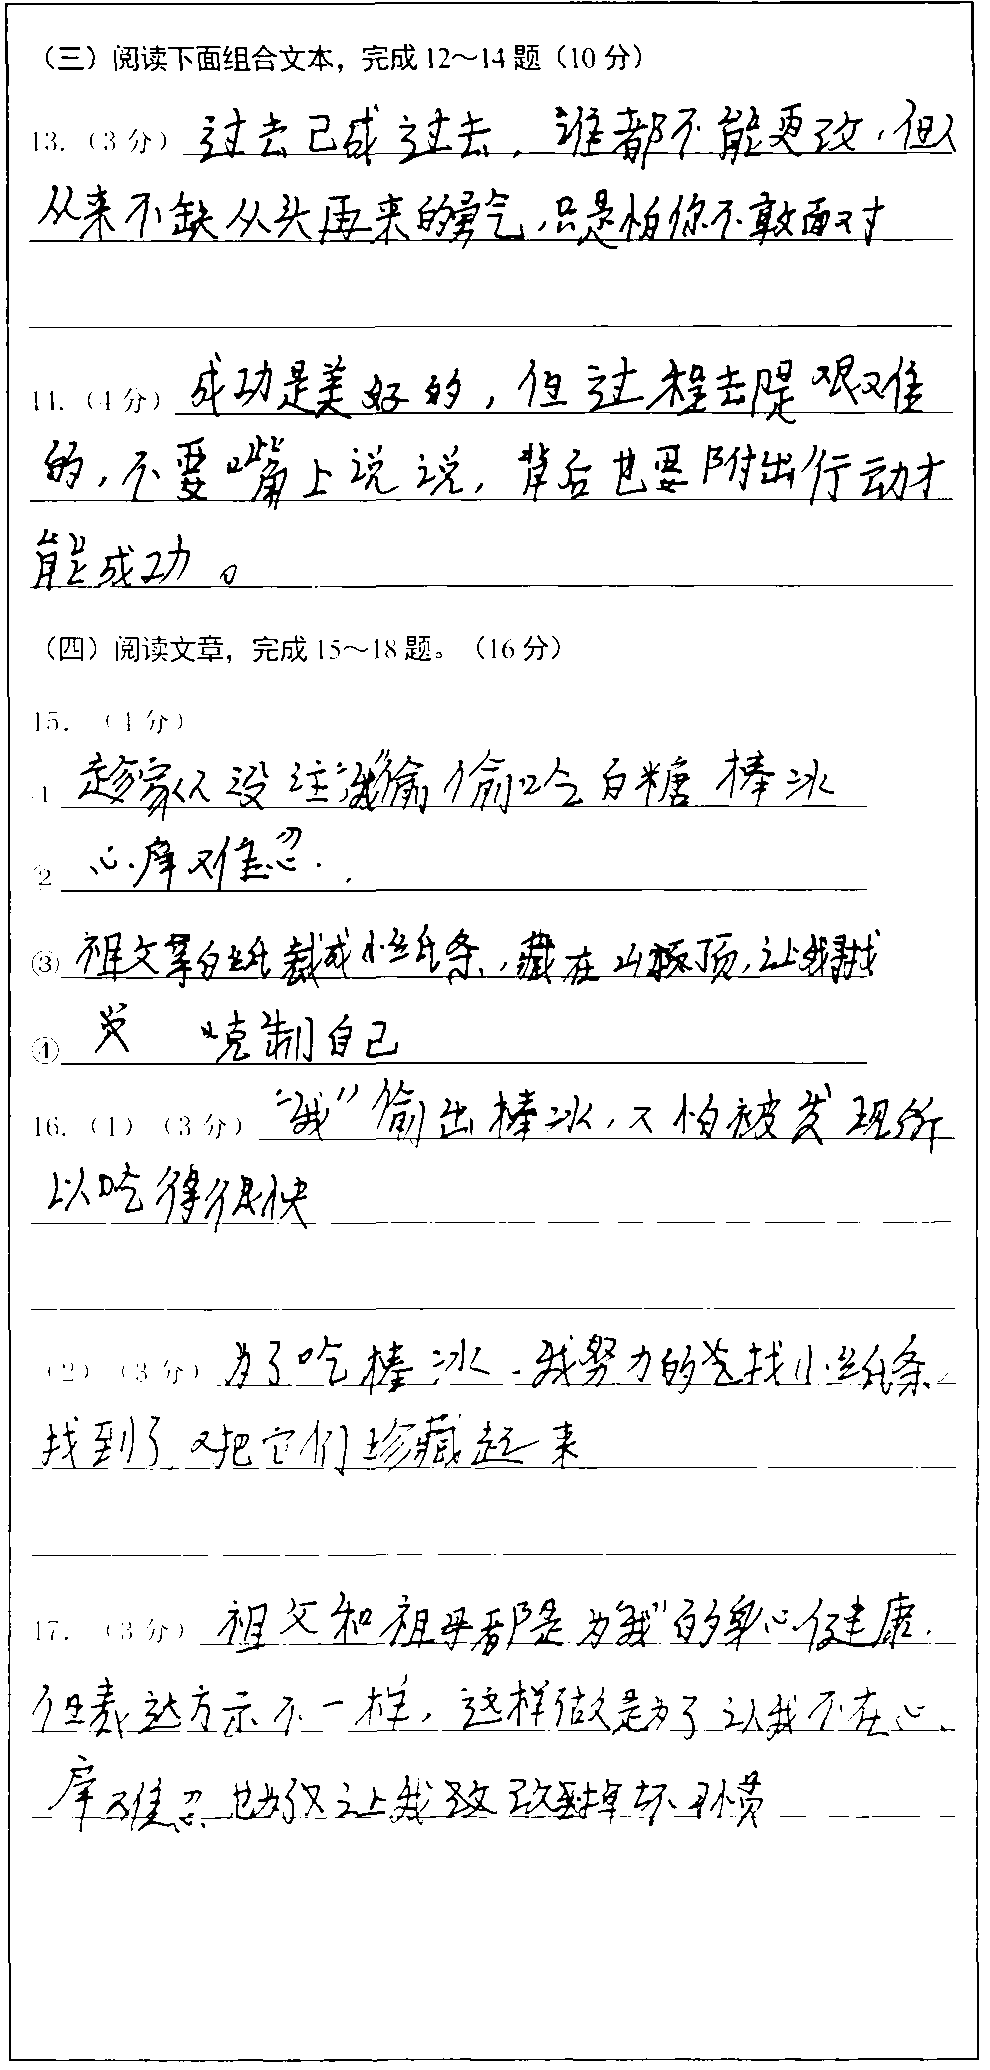 （三）阅读下面组合文本，完成12～14题（10分）
13.（3分）过去已成过去，谁都不能更改，但人
从来不缺从头再来的勇气，只是怕你不敢面对
14.（4分）成功是美好的，但过程却是艰难
的，不要嘴上说说，背后也要附出行动才
能成功。
（四）阅读文章，完成15～18题。（16分）
15.（4分）
1 趁家人没注"我"偷偷吃白糖棒冰
② 心痒难忍.
③ 祖父拿白纸裁成小纸条，藏在山板顶，让我找
④ 发 克制自己
16.（1）（3分）"我"偷出棒冰，又怕被发现所
以吃得很快
（2）（3分）为了吃棒冰，我努力的先找小纸条
找到了又把它们珍藏起来
17.（3分）祖父和祖母都是为"我"的身心健康.
但表达方示不一样，这样做是为了认我不在心
痒难忍 也为仅让我改改掉坏习惯